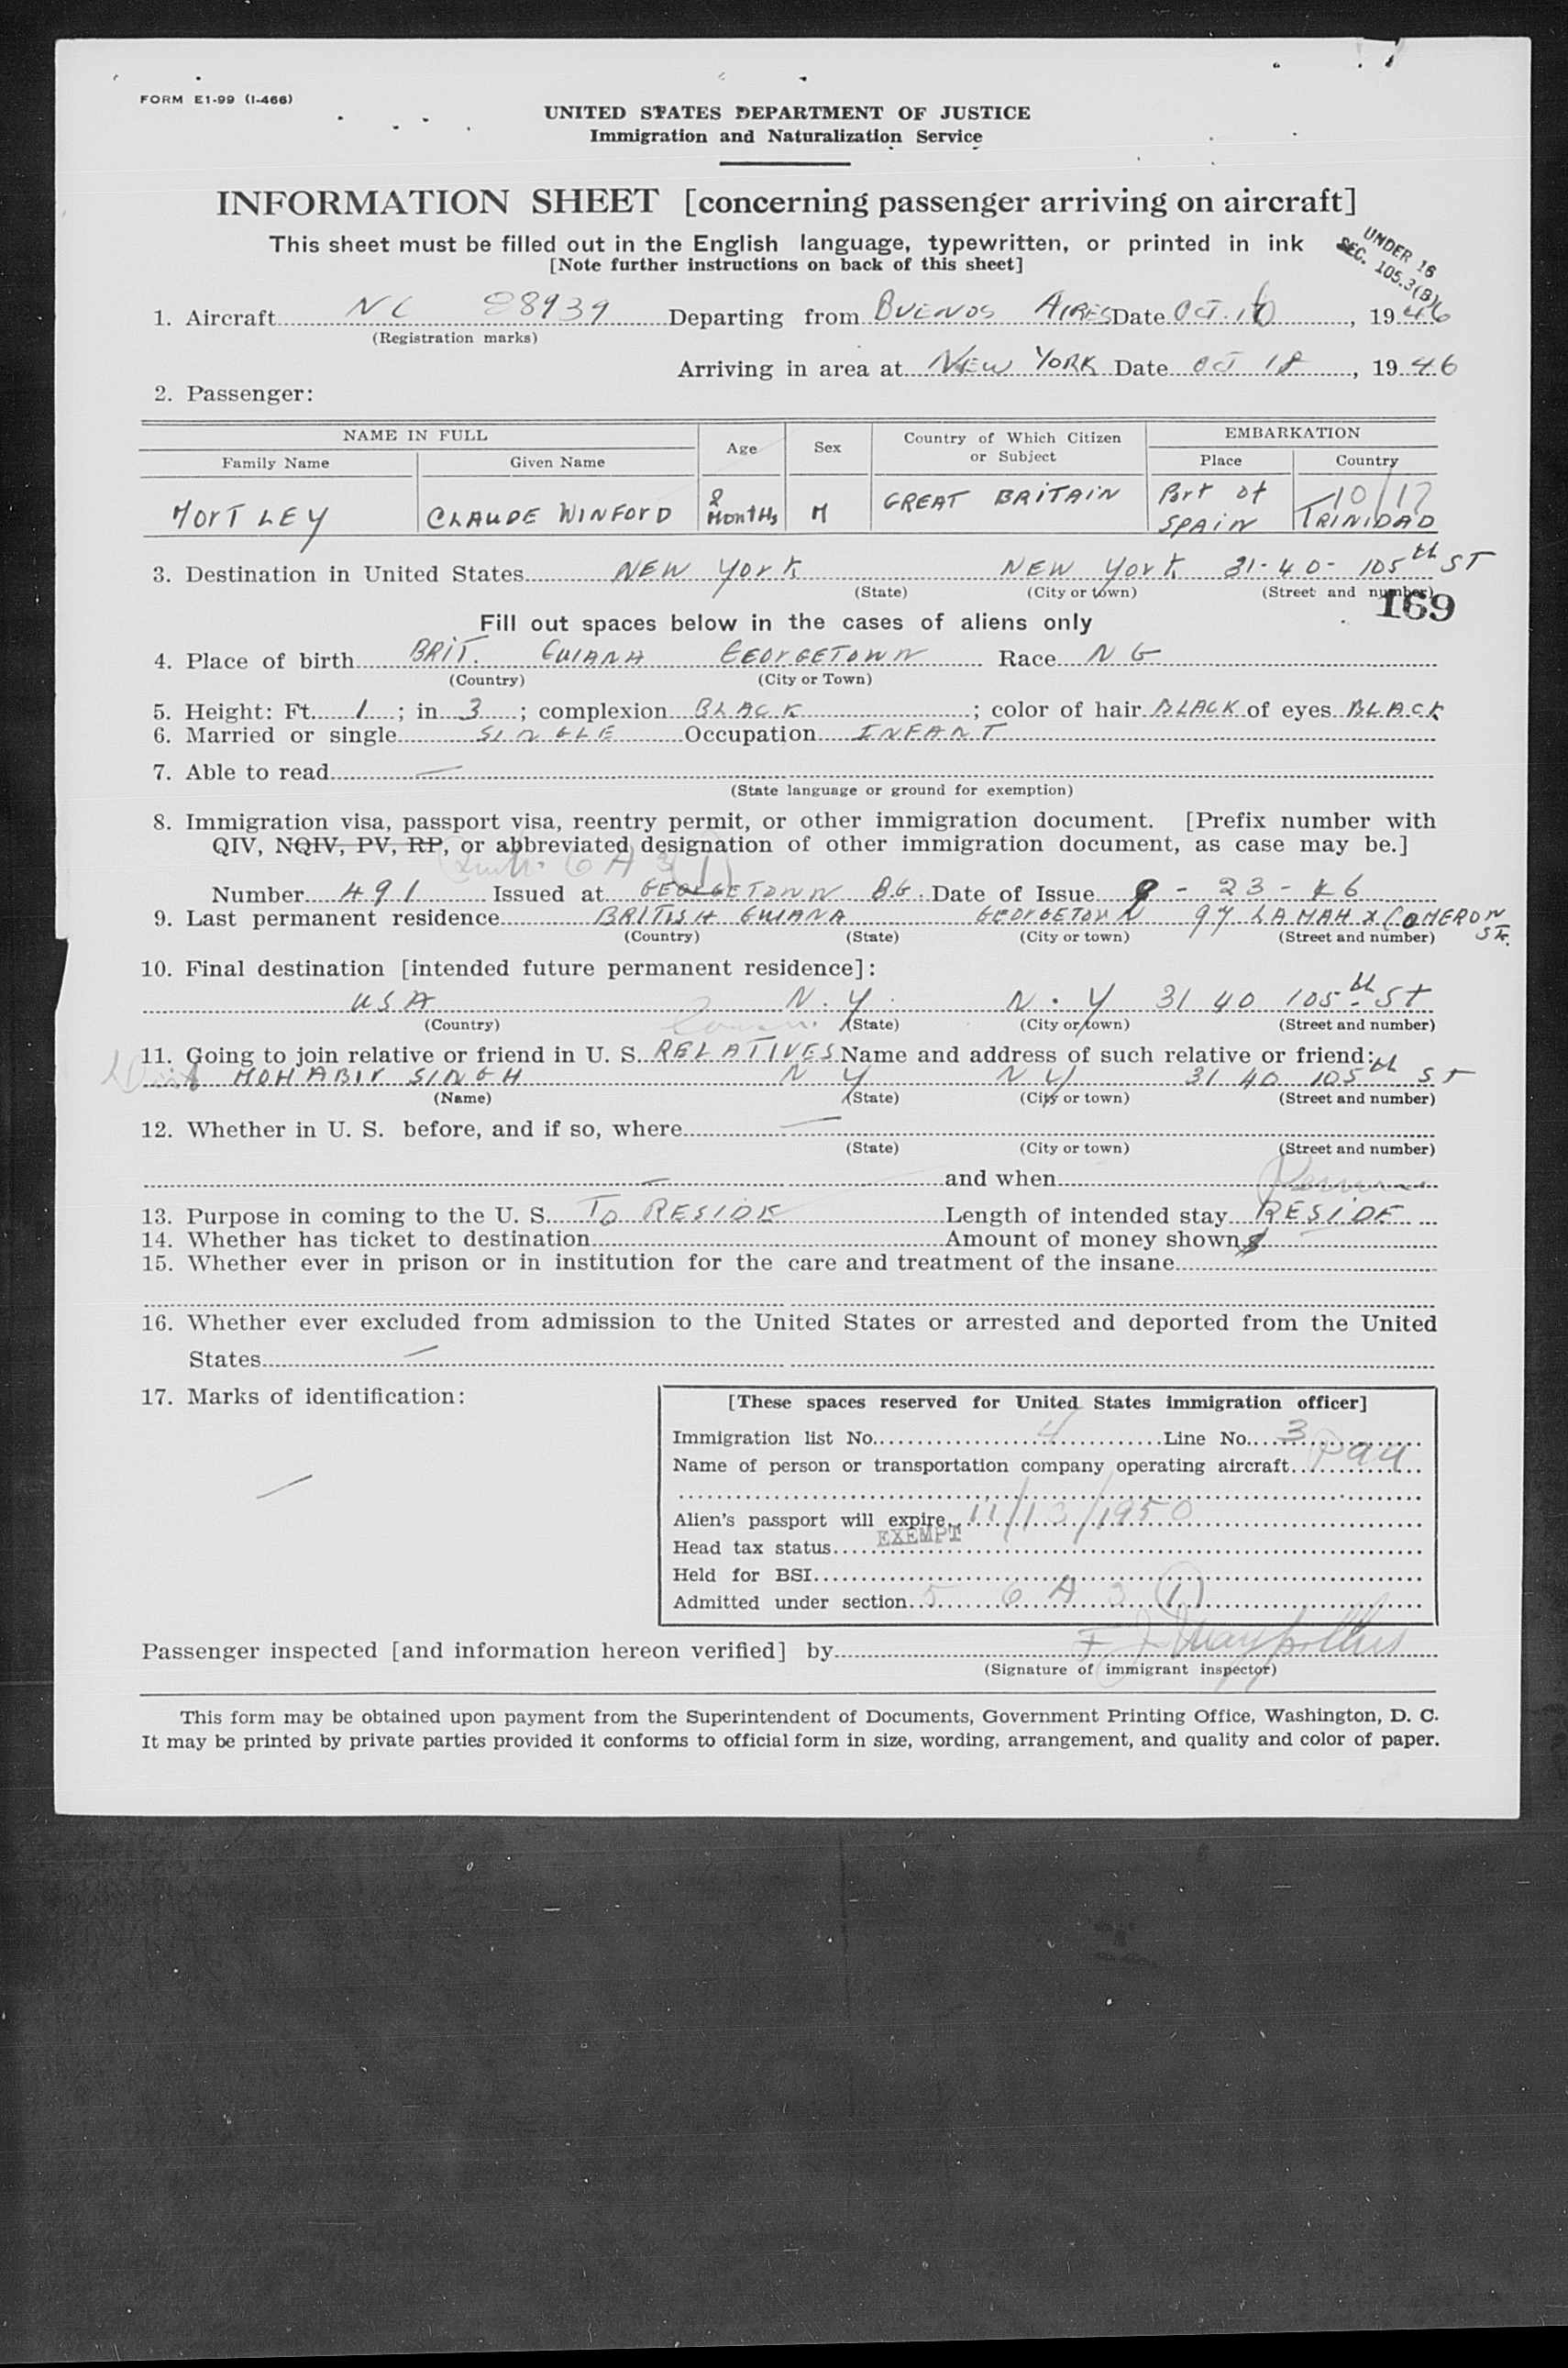 FORM E1-99 (I-466)
UNITED STATES DEPARTMENT OF JUSTICE
Immigration and Naturalization Service
INFORMATION SHEET [concerning passenger arriving on aircraft]
This sheet must be filled out in the English language, typewritten, or printed in ink
[Note further instructions on back of this sheet]
UNDER 16
SEC. 105.3(B)
1. Aircraft NC 88939 Departing from BUENOS AIRES Date OCT. 16, 1946
(Registration marks)
Arriving in area at NEW YORK Date OCT 18, 1946
2. Passenger:
NAME IN FULL Age Sex Country of Which Citizen or Subject EMBARKATION
Family Name Given Name Place Country
10/17
MORTLEY CLAUDE WINFORD 8 MONTHS M GREAT BRITAIN PORT OF SPAIN TRINIDAD
3. Destination in United States NEW YORK NEW YORK 31-40-105th ST
(State) (City or town) (Street and number)
169
Fill out spaces below in the cases of aliens only
4. Place of birth BRIT. GUIANA GEORGETOWN Race NG
(Country) (City or Town)
5. Height: Ft. 1; in 3; complexion BLACK; color of hair BLACK of eyes BLACK
6. Married or single SINGLE Occupation INFANT
7. Able to read —
(State language or ground for exemption)
8. Immigration visa, passport visa, reentry permit, or other immigration document. [Prefix number with
QIV, NQIV, PV, RP, or abbreviated designation of other immigration document, as case may be.]
6 A 3 (1)
Number 491 Issued at GEORGETOWN B.G. Date of Issue 9-23-46
9. Last permanent residence BRITISH GUIANA GEORGETOWN 97 LAMAH & COMERON STR.
(Country) (State) (City or town) (Street and number)
10. Final destination [intended future permanent residece]:
USA N.Y. N.Y 31 40 105th ST
(Country) (State) (City or town) (Street and number)
11. Going to join relative or friend in U. S. RELATIVES Name and address of such relative or friend:
MOHABIR SINGH N Y N Y 31 40 105th ST
(Name) (State) (City or town) (Street and number)
12. Whether in U. S. before, and if so, where —
(State) (City or town) (Street and number)
— and when
13. Purpose in coming to the U. S. TO RESIDE Length of intended stay RESIDE
14. Whether has ticket to destination Amount of money shown $
15. Whether ever in prison or in institution for the care and treatment of the insane
16. Whether ever excluded from admission to the United States or arrested and deported from the United
States —
17. Marks of identification:
—
[These spaces reserved for United States immigration officer]
Immigration list No. 4 Line No. 3
Name of person or transportation company operating aircraft Paa
Alien's passport will expire 11/13/1950
Head tax status EXEMPT
Held for BSI
Admitted under section 5 6 A 3 (1)
Passenger inspected [and information hereon verified] by
(Signature of immigrant inspector)
This form may be obtained upon payment from the Superintendent of Documents, Government Printing Office, Washington, D. C.
It may be printed by private parties provided it conforms to official form in size, wording, arrangement, and quality and color of paper.